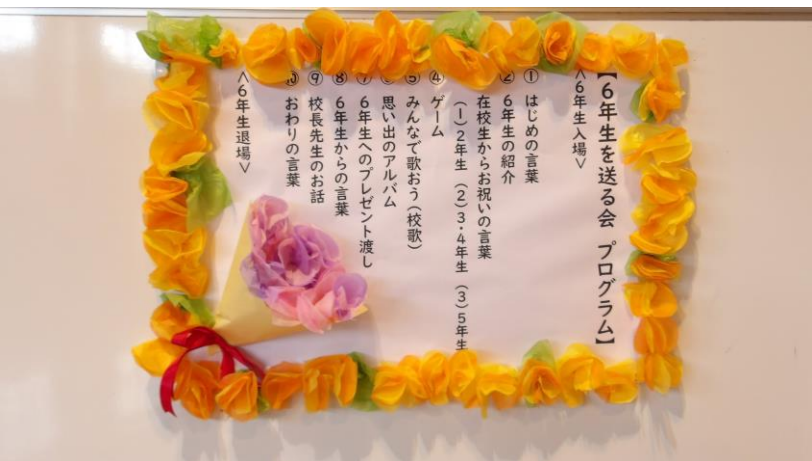 【6年生を送る会 プログラム】
<6年生入場>
① はじめの言葉
② 6年生の紹介
在校生からお祝いの言葉
(1)2年生 (2)3・4年生 (3)5年生
④ ゲーム
⑤ みんなで歌おう(校歌)
思い出のアルバム
⑦ 6年生へのプレゼント渡し
⑧ 6年生からの言葉
⑨ 校長先生のお話
⑩ おわりの言葉
<6年生退場>